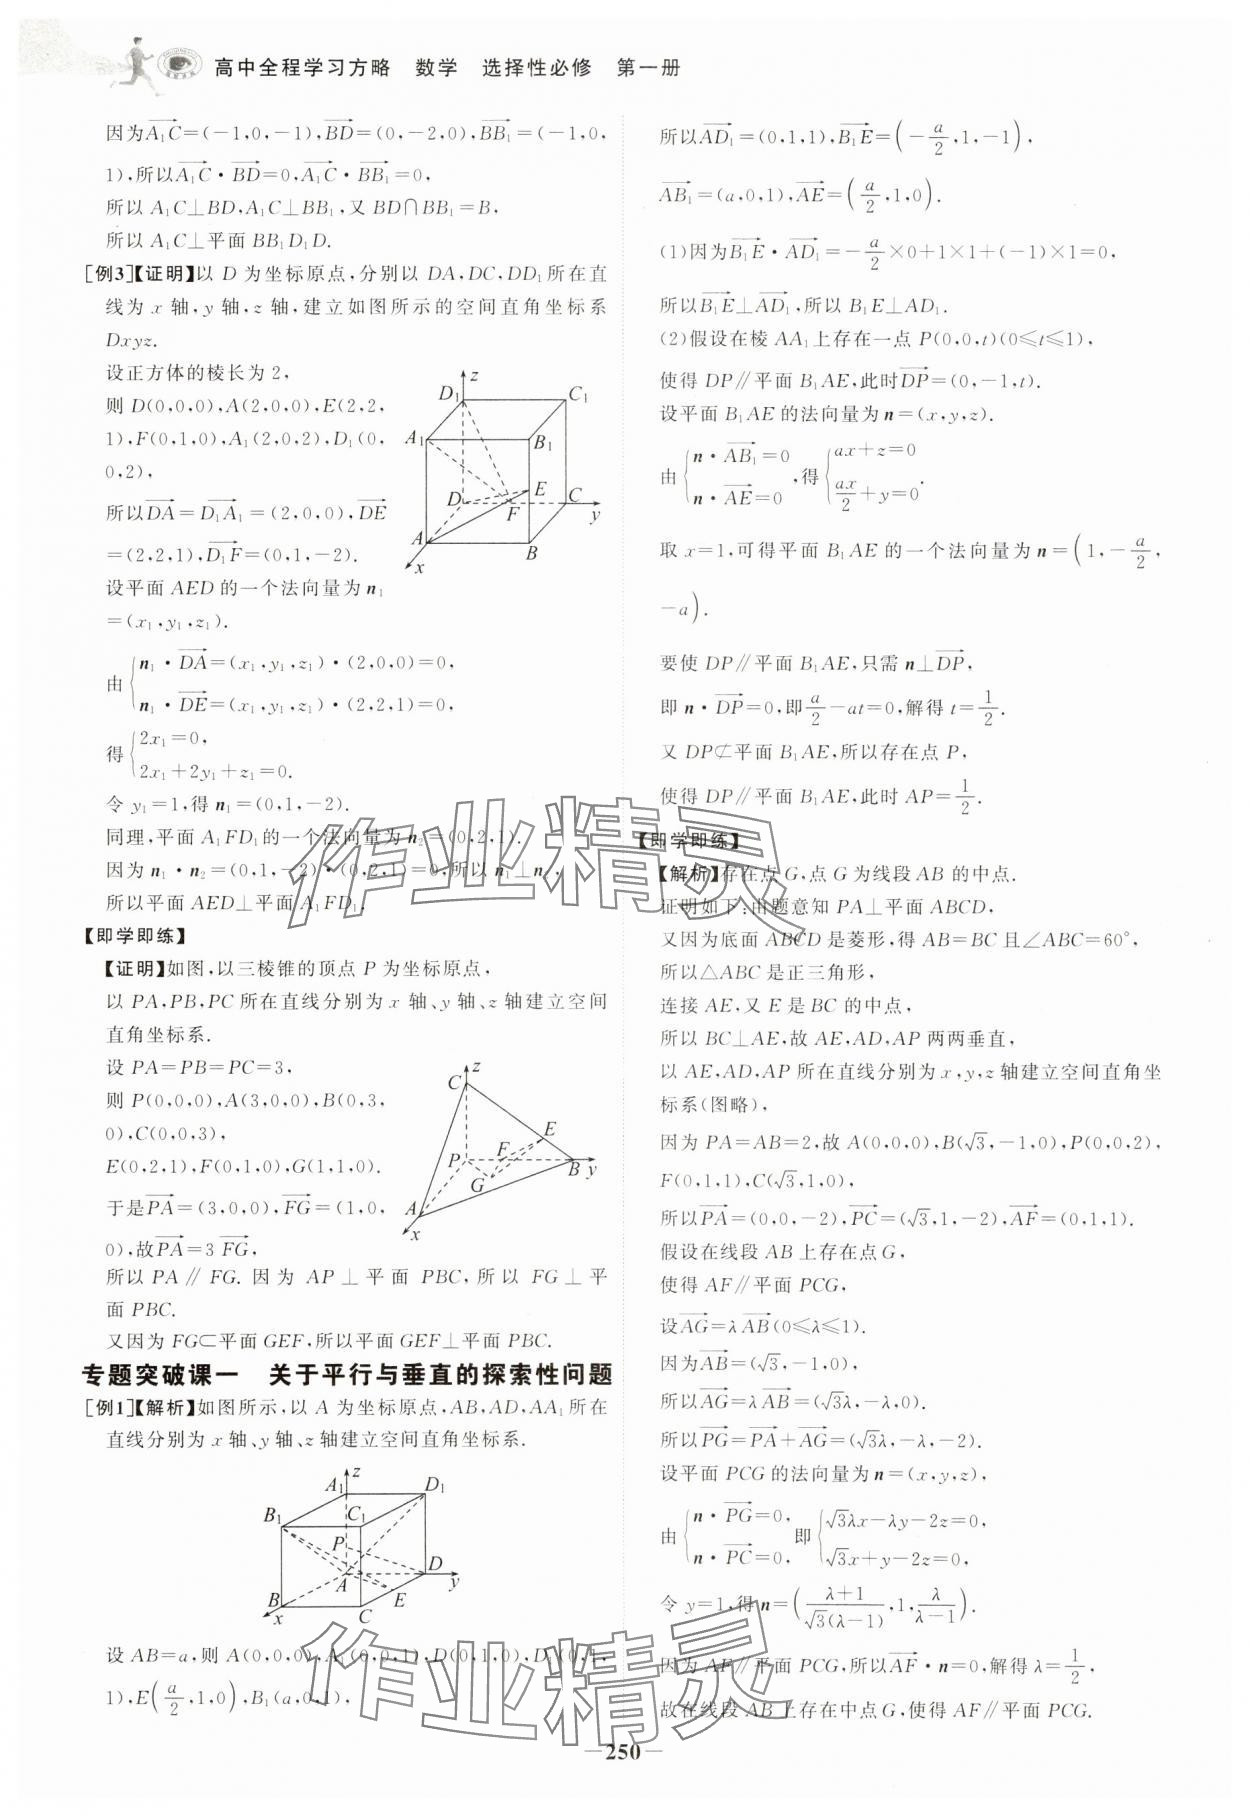 高中全程学习方略 数学 选择性必修 第一册
因为A₁C→=(-1,0,-1),BD→=(0,-2,0),BB₁→=(-1,0,
1),所以A₁C→·BD→=0,A₁C→·BB₁→=0,
所以 A₁C⊥BD,A₁C⊥BB₁,又 BD∩BB₁=B,
所以 A₁C⊥平面 BB₁D₁D.
[例3]【证明】以 D 为坐标原点,分别以 DA,DC,DD₁所在直
线为 x 轴,y 轴,z 轴,建立如图所示的空间直角坐标系
Dxyz.
设正方体的棱长为 2,
则 D(0,0,0),A(2,0,0),E(2,2,
1),F(0,1,0),A₁(2,0,2),D₁(0,
0,2),
所以DA→=D₁A₁→=(2,0,0),DE→
=(2,2,1),D₁F→=(0,1,-2).
设平面 AED 的一个法向量为 n₁
=(x₁,y₁,z₁).
由{n₁·DA→=(x₁,y₁,z₁)·(2,0,0)=0,
n₁·DE→=(x₁,y₁,z₁)·(2,2,1)=0,
得{2x₁=0,
2x₁+2y₁+z₁=0.
令 y₁=1,得 n₁=(0,1,-2).
同理,平面 A₁FD₁的一个法向量为 n₂=(0,2,1).
因为 n₁·n₂=(0,1,-2)·(0,2,1)=0,所以 n₁⊥n₂,
所以平面 AED⊥平面 A₁FD₁.
z
D₁
C₁
A₁
B₁
E
D
F
C
y
A
B
x
【即学即练】
【证明】如图,以三棱锥的顶点 P 为坐标原点,
以 PA,PB,PC 所在直线分别为 x 轴、y 轴、z 轴建立空间
直角坐标系.
设 PA=PB=PC=3,
则 P(0,0,0),A(3,0,0),B(0,3,
0),C(0,0,3),
E(0,2,1),F(0,1,0),G(1,1,0).
于是PA→=(3,0,0),FG→=(1,0,
0),故PA→=3 FG→,
所以 PA∥FG. 因为 AP⊥平面 PBC,所以 FG⊥平
面 PBC.
又因为 FG⊂平面 GEF,所以平面 GEF⊥平面 PBC.
z
C
E
P
F
B
y
G
A
x
专题突破课一 关于平行与垂直的探索性问题
[例1]【解析】如图所示,以 A 为坐标原点,AB,AD,AA₁所在
直线分别为 x 轴、y 轴、z 轴建立空间直角坐标系.
z
A₁
D₁
B₁
C₁
P
A
D
y
B
E
x
C
设 AB=a,则 A(0,0,0),A₁(0,0,1),D(0,1,0),D₁(0,1,
1),E(a/2,1,0),B₁(a,0,1),
所以AD₁→=(0,1,1),B₁E→=(-a/2,1,-1),
AB₁→=(a,0,1),AE→=(a/2,1,0).
(1)因为B₁E→·AD₁→=-a/2×0+1×1+(-1)×1=0,
所以B₁E→⊥AD₁→,所以 B₁E⊥AD₁.
(2)假设在棱 AA₁上存在一点 P(0,0,t)(0≤t≤1),
使得 DP∥平面 B₁AE,此时DP→=(0,-1,t).
设平面 B₁AE 的法向量为 n=(x,y,z).
由{n·AB₁→=0
n·AE→=0,得{ax+z=0
ax/2+y=0.
取 x=1,可得平面 B₁AE 的一个法向量为 n=(1,-a/2,
-a).
要使 DP∥平面 B₁AE,只需 n⊥DP→,
即 n·DP→=0,即a/2-at=0,解得 t=1/2.
又 DP⊄平面 B₁AE,所以存在点 P,
使得 DP∥平面 B₁AE,此时 AP=1/2.
【即学即练】
【解析】存在点 G,点 G 为线段 AB 的中点.
证明如下:由题意知 PA⊥平面 ABCD,
又因为底面 ABCD 是菱形,得 AB=BC 且∠ABC=60°,
所以△ABC 是正三角形,
连接 AE,又 E 是 BC 的中点,
所以 BC⊥AE,故 AE,AD,AP 两两垂直,
以 AE,AD,AP 所在直线分别为 x,y,z 轴建立空间直角坐
标系(图略),
因为 PA=AB=2,故 A(0,0,0),B(√3,-1,0),P(0,0,2),
F(0,1,1),C(√3,1,0),
所以PA→=(0,0,-2),PC→=(√3,1,-2),AF→=(0,1,1).
假设在线段 AB 上存在点 G,
使得 AF∥平面 PCG,
设AG→=λAB→(0≤λ≤1).
因为AB→=(√3,-1,0),
所以AG→=λAB→=(√3λ,-λ,0).
所以PG→=PA→+AG→=(√3λ,-λ,-2).
设平面 PCG 的法向量为 n=(x,y,z),
由{n·PG→=0,
n·PC→=0,即{√3λx-λy-2z=0,
√3x+y-2z=0,
令 y=1,得 n=(λ+1/√3(λ-1),1,λ/λ-1).
因为 AF∥平面 PCG,所以AF→·n=0,解得 λ=1/2,
故在线段 AB 上存在中点 G,使得 AF∥平面 PCG.
作业精灵
作业精灵
250